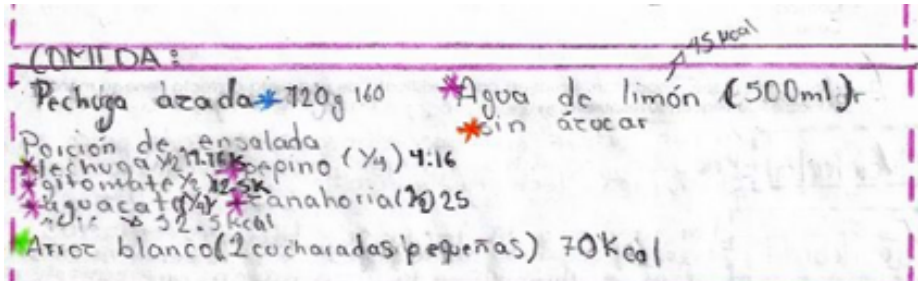 15 kcal
COMIDA:
Pechuga azada * 120g 160
* Agua de limón (500ml)
* sin ázucar
Porción de ensalada
* lechuga ½ * pepino (¼) 4.16
* gitomate ½ 12.5K
* aguacate (¼) * zanahoria (½) 25
52.5 kcal
* Arroz blanco (2 cucharadas pequeñas) 70 Kcal